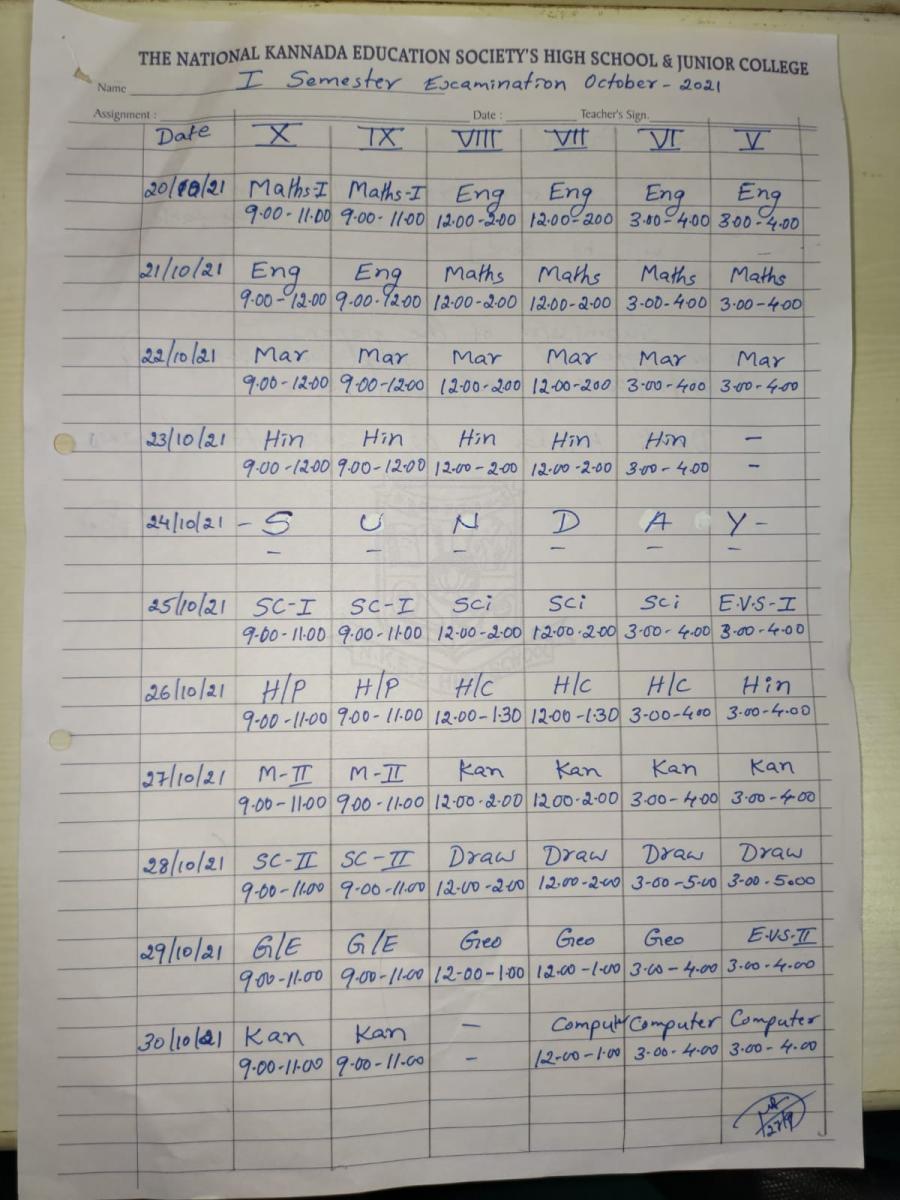 THE NATIONAL KANNADA EDUCATION SOCIETY'S HIGH SCHOOL & JUNIOR COLLEGE
Name I Semester Examination October - 2021
Assignment : Date : Teacher's Sign.
Date X IX VIII VII VI V
20/10/21 Maths-I Maths-I Eng Eng Eng Eng
9.00-11.00 9.00-11.00 12.00-2.00 12.00-200 3.00-4.00 3.00-4.00
21/10/21 Eng Eng Maths Maths Maths Maths
9.00-12.00 9.00-12.00 12.00-2.00 12.00-2.00 3.00-4.00 3.00-4.00
22/10/21 Mar Mar Mar Mar Mar Mar
9.00-12.00 9.00-12.00 12.00-200 12.00-200 3.00-400 3.00-4.00
23/10/21 Hin Hin Hin Hin Hin -
9.00-12.00 9.00-12.00 12.00-2.00 12.00-2.00 3.00-4.00 -
24/10/21 - S U N D A Y -
- - - - - -
25/10/21 SC-I SC-I Sci Sci Sci E.V.S-I
9.00-11.00 9.00-11.00 12.00-2.00 12.00-2.00 3.00-4.00 3.00-4.00
26/10/21 H/P H/P H/C H/C H/C Hin
9.00-11.00 9.00-11.00 12.00-1.30 12.00-1.30 3.00-400 3.00-4.00
27/10/21 M-II M-II Kan Kan Kan Kan
9.00-11.00 9.00-11.00 12.00-2.00 1200-2.00 3.00-4.00 3.00-4.00
28/10/21 SC-II SC-II Draw Draw Draw Draw
9.00-11.00 9.00-11.00 12.00-2.00 12.00-2.00 3.00-5.00 3.00-5.00
29/10/21 G/E G/E Geo Geo Geo E.V.S-II
9.00-11.00 9.00-11.00 12.00-1.00 12.00-1.00 3.00-4.00 3.00-4.00
30/10/21 Kan Kan - Computer Computer Computer
9.00-11.00 9.00-11.00 - 12.00-1.00 3.00-4.00 3.00-4.00
27/9